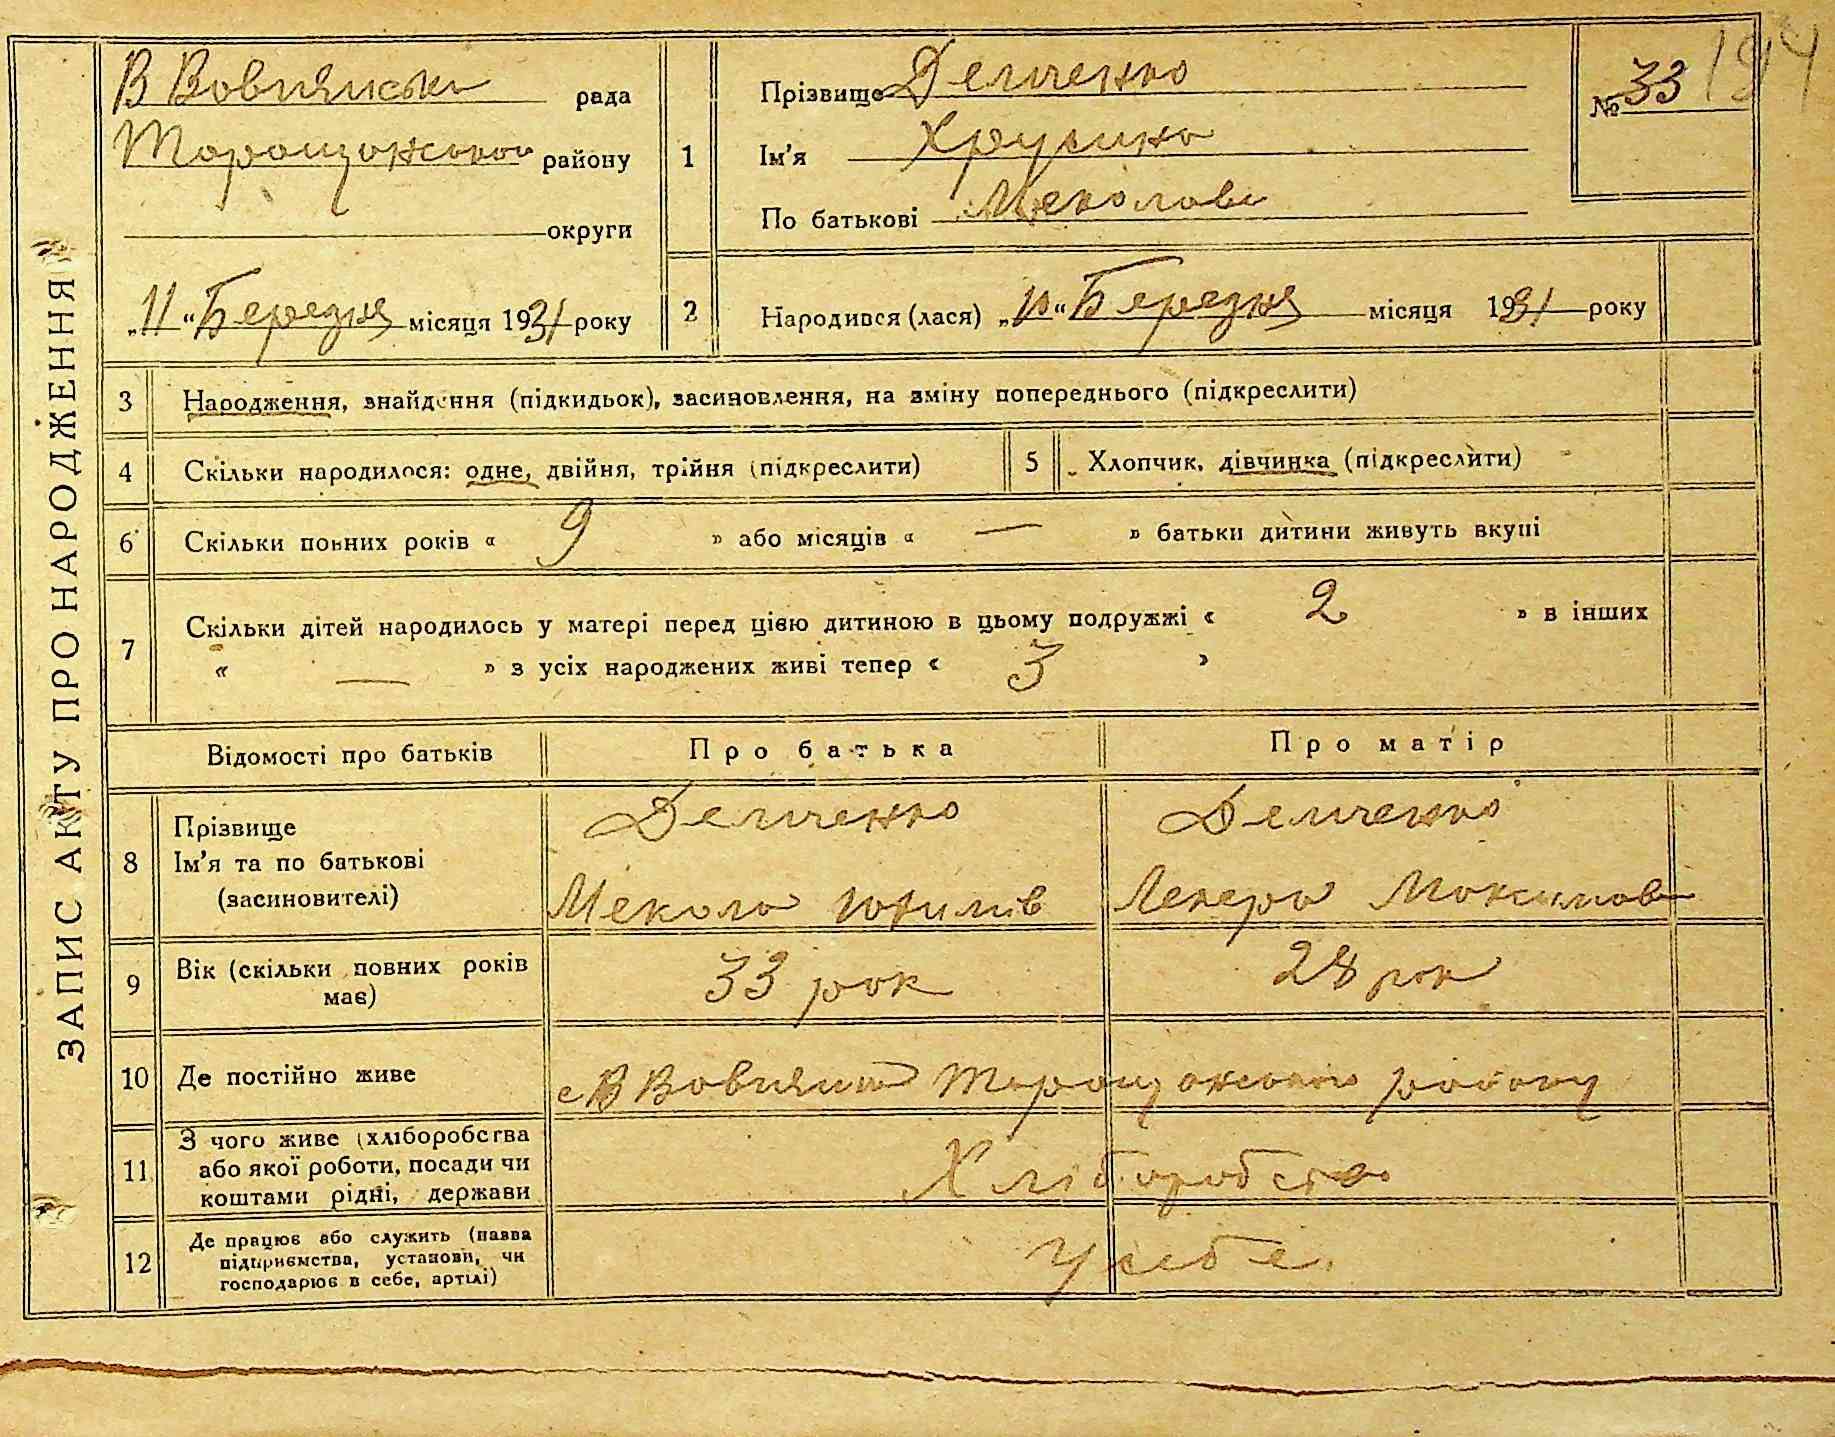 ЗАПИС АКТУ ПРО НАРОДЖЕННЯ
В Вовнянська рада
Таращанського району
округи
„11“ Березня місяця 1931 року
1 Прізвище Демченко
Ім'я Хрусина
По батькові Меколаве
№ 33 194
2 Народився (лася) „10“ Березня місяця 1931 року
3 Народження, знайдення (підкидьок), засиновлення, на зміну попереднього (підкреслити)
4 Скільки народилося: одне, двійня, трійня (підкреслити)
5 Хлопчик, дівчинка (підкреслити)
6 Скільки повних років « 9 » або місяців « — » батьки дитини живуть вкупі
7 Скільки дітей народилось у матері перед цією дитиною в цьому подружжі « 2 » в інших
« — » з усіх народжених живі тепер « 3 »
Відомості про батьків Про батька Про матір
8 Прізвище
Ім'я та по батькові
(засиновителі)
Демченко
Мекола Юхимів
Демченко
Ликера Максимовне
9 Вік (скільки повних років
має)
33 рок
28 рок
10 Де постійно живе
с В Вовнянка Таращанського району
11 З чого живе (хліборобства
або якої роботи, посади чи
коштами рідні, держави
Хліборобство
12 Де працює або служить (назва
підприємства, установи, чи
господарює в себе, артілі)
У себе.